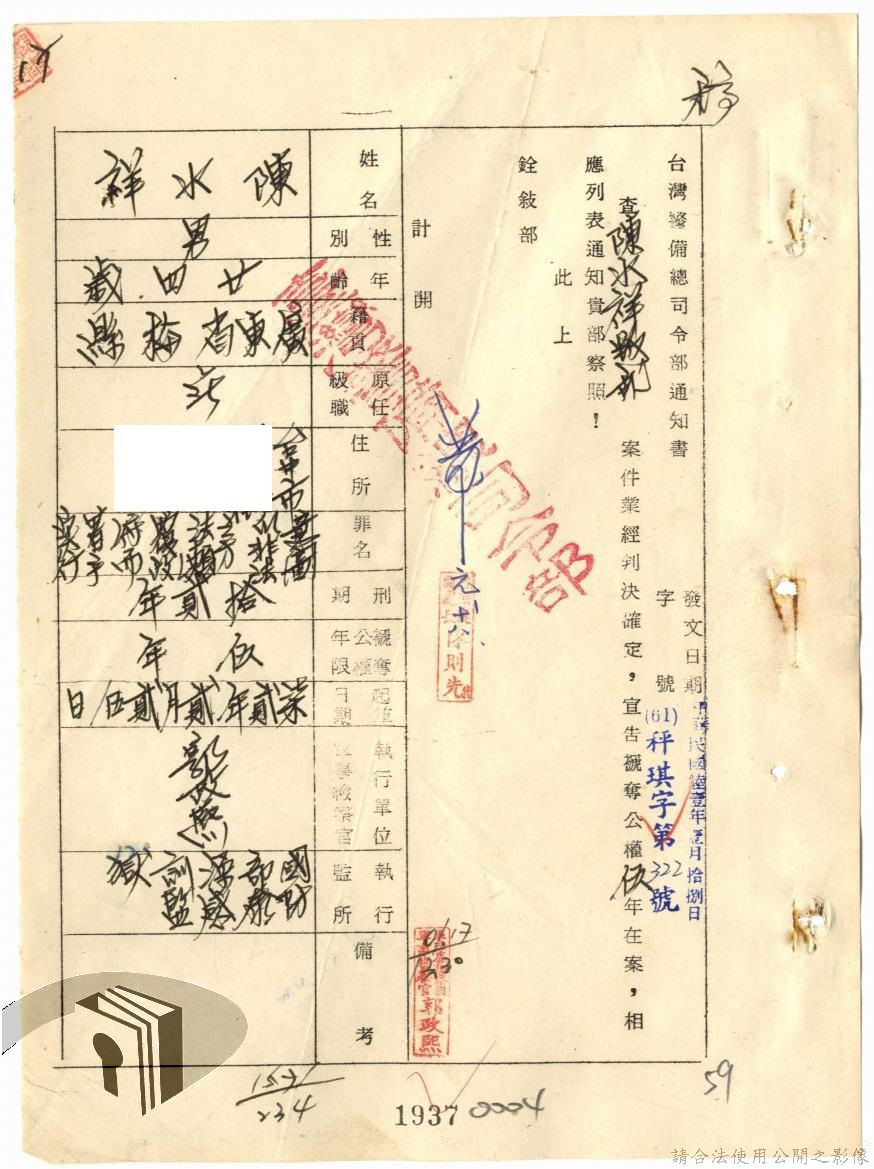 稿
台灣警備總司令部通知書
發文日期 中華民國陸壹年壹月拾捌日
字號 (61)秤琪字第322號
查陳水祥叛亂案件業經判決確定,宣告褫奪公權伍年在案,相
應列表通知貴部察照!
此上
銓敘部
計開
姓名 陳水祥
性別 男
年齡 廿四歲
籍貫 廣東省梅縣
原任級職
住所 台中市
罪名 意圖以非法方法顛覆政府而著手實行
刑期 拾貳年
褫奪公權年限 伍年
起算日期 柒貳年貳月貳伍日
執行單位軍事檢察官 郭政熙
執行監所 國防部泰源感訓監獄
備考
元十八
陳則先
0117
1230
郭政熙
1531
234
1937 0004
59
請合法使用公開之影像